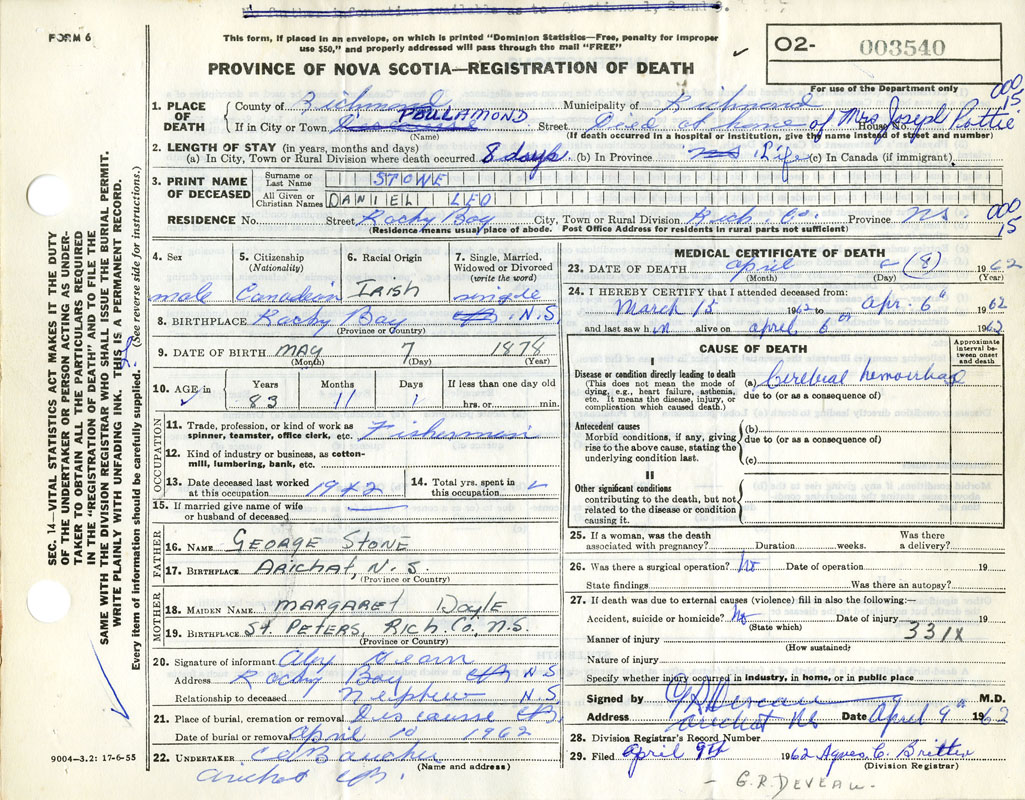 No further information available as to Questions 1, 2 and 3.
FORM 6
This form, if placed in an envelope, on which is printed "Dominion Statistics—Free, penalty for improper
use $50," and properly addressed will pass through the mail "FREE"
O2- 003540
For use of the Department only
PROVINCE OF NOVA SCOTIA—REGISTRATION OF DEATH
000
15
1. PLACE OF DEATH
County of Richmond Municipality of Richmond
If in City or Town POULAMOND Street Died at home of Mrs Joseph Pottie House No.
(Name) (If death occurred in a hospital or institution, give the name instead of street and number)
2. LENGTH OF STAY (in years, months and days)
(a) In City, Town or Rural Division where death occurred 8 days (b) In Province Life (c) In Canada (if immigrant)
3. PRINT NAME OF DECEASED
Surname or Last Name STONE
All Given or Christian Names DANIEL LEO
RESIDENCE No. Street Rocky Bay City, Town or Rural Division Rich. Co. Province N.S.
000
15
(Residence means usual place of abode. Post Office Address for residents in rural parts not sufficient)
4. Sex 5. Citizenship 6. Racial Origin 7. Single, Married,
(Nationality) Widowed or Divorced
(write the word)
male Canadian Irish single
8. BIRTHPLACE Rocky Bay CB. N.S
(Province or Country)
9. DATE OF BIRTH MAY 7 1878
(Month) (Day) (Year)
10. AGE in Years Months Days If less than one day old
83 11 1 hrs. or min.
OCCUPATION
11. Trade, profession, or kind of work as
spinner, teamster, office clerk, etc. Fishermen
12. Kind of industry or business, as cotton-
mill, lumbering, bank, etc.
13. Date deceased last worked
at this occupation 1942
14. Total yrs. spent in
this occupation
15. If married give name of wife
or husband of deceased
FATHER
16. NAME GEORGE STONE
17. BIRTHPLACE ARICHAT, N.S.
(Province or Country)
MOTHER
18. MAIDEN NAME MARGARET Doyle
19. BIRTHPLACE ST. PETERS, RICH. CO., N.S.
(Province or Country)
20. Signature of informant
Address Rocky Bay CB N.S
Relationship to deceased Nephew N.S
21. Place of burial, cremation or removal Discousse CB
Date of burial or removal April 10 1962
22. UNDERTAKER
Arichat CB.
(Name and address)
9004—3.2: 17-6-55
MEDICAL CERTIFICATE OF DEATH
23. DATE OF DEATH April (8) 1962
(Month) (Day) (Year)
24. I HEREBY CERTIFY that I attended deceased from:
March 15 1962 to Apr. 6th 1962
and last saw him alive on April 6th 1962
CAUSE OF DEATH
Approximate interval be-tween onset and death
I
Disease or condition directly leading to death
(This does not mean the mode of
dying, e.g., heart failure, asthenia,
etc. It means the disease, injury, or
complication which caused death.)
(a) Cerebral hemorrhage
due to (or as a consequence of)
Antecedent causes
Morbid conditions, if any, giving
rise to the above cause, stating the
underlying condition last.
(b)
due to (or as a consequence of)
(c)
II
Other significant conditions
contributing to the death, but not
related to the disease or condition
causing it.
25. If a woman, was the death Was there
associated with pregnancy? Duration weeks. a delivery?
26. Was there a surgical operation? No Date of operation 19
State findings Was there an autopsy?
27. If death was due to external causes (violence) fill in also the following:—
Accident, suicide or homicide? No Date of injury 19
(State which)
331X
Manner of injury
(How sustained)
Nature of injury
Specify whether injury occurred in industry, in home, or in public place
Signed by G R Deveau M.D.
Address Arichat NS Date April 9th 1962
28. Division Registrar's Record Number
29. Filed April 9th 1962 Agnes C. Britten
(Division Registrar)
— G.R. DEVEAU —
SEC. 14—VITAL STATISTICS ACT MAKES IT THE DUTY
OF THE UNDERTAKER OR PERSON ACTING AS UNDER-
TAKER TO OBTAIN ALL THE PARTICULARS REQUIRED
IN THE "REGISTRATION OF DEATH" AND TO FILE THE
SAME WITH THE DIVISION REGISTRAR WHO SHALL ISSUE THE BURIAL PERMIT.
WRITE PLAINLY WITH UNFADING INK. THIS IS A PERMANENT RECORD.
Every item of information should be carefully supplied. (See reverse side for instructions.)